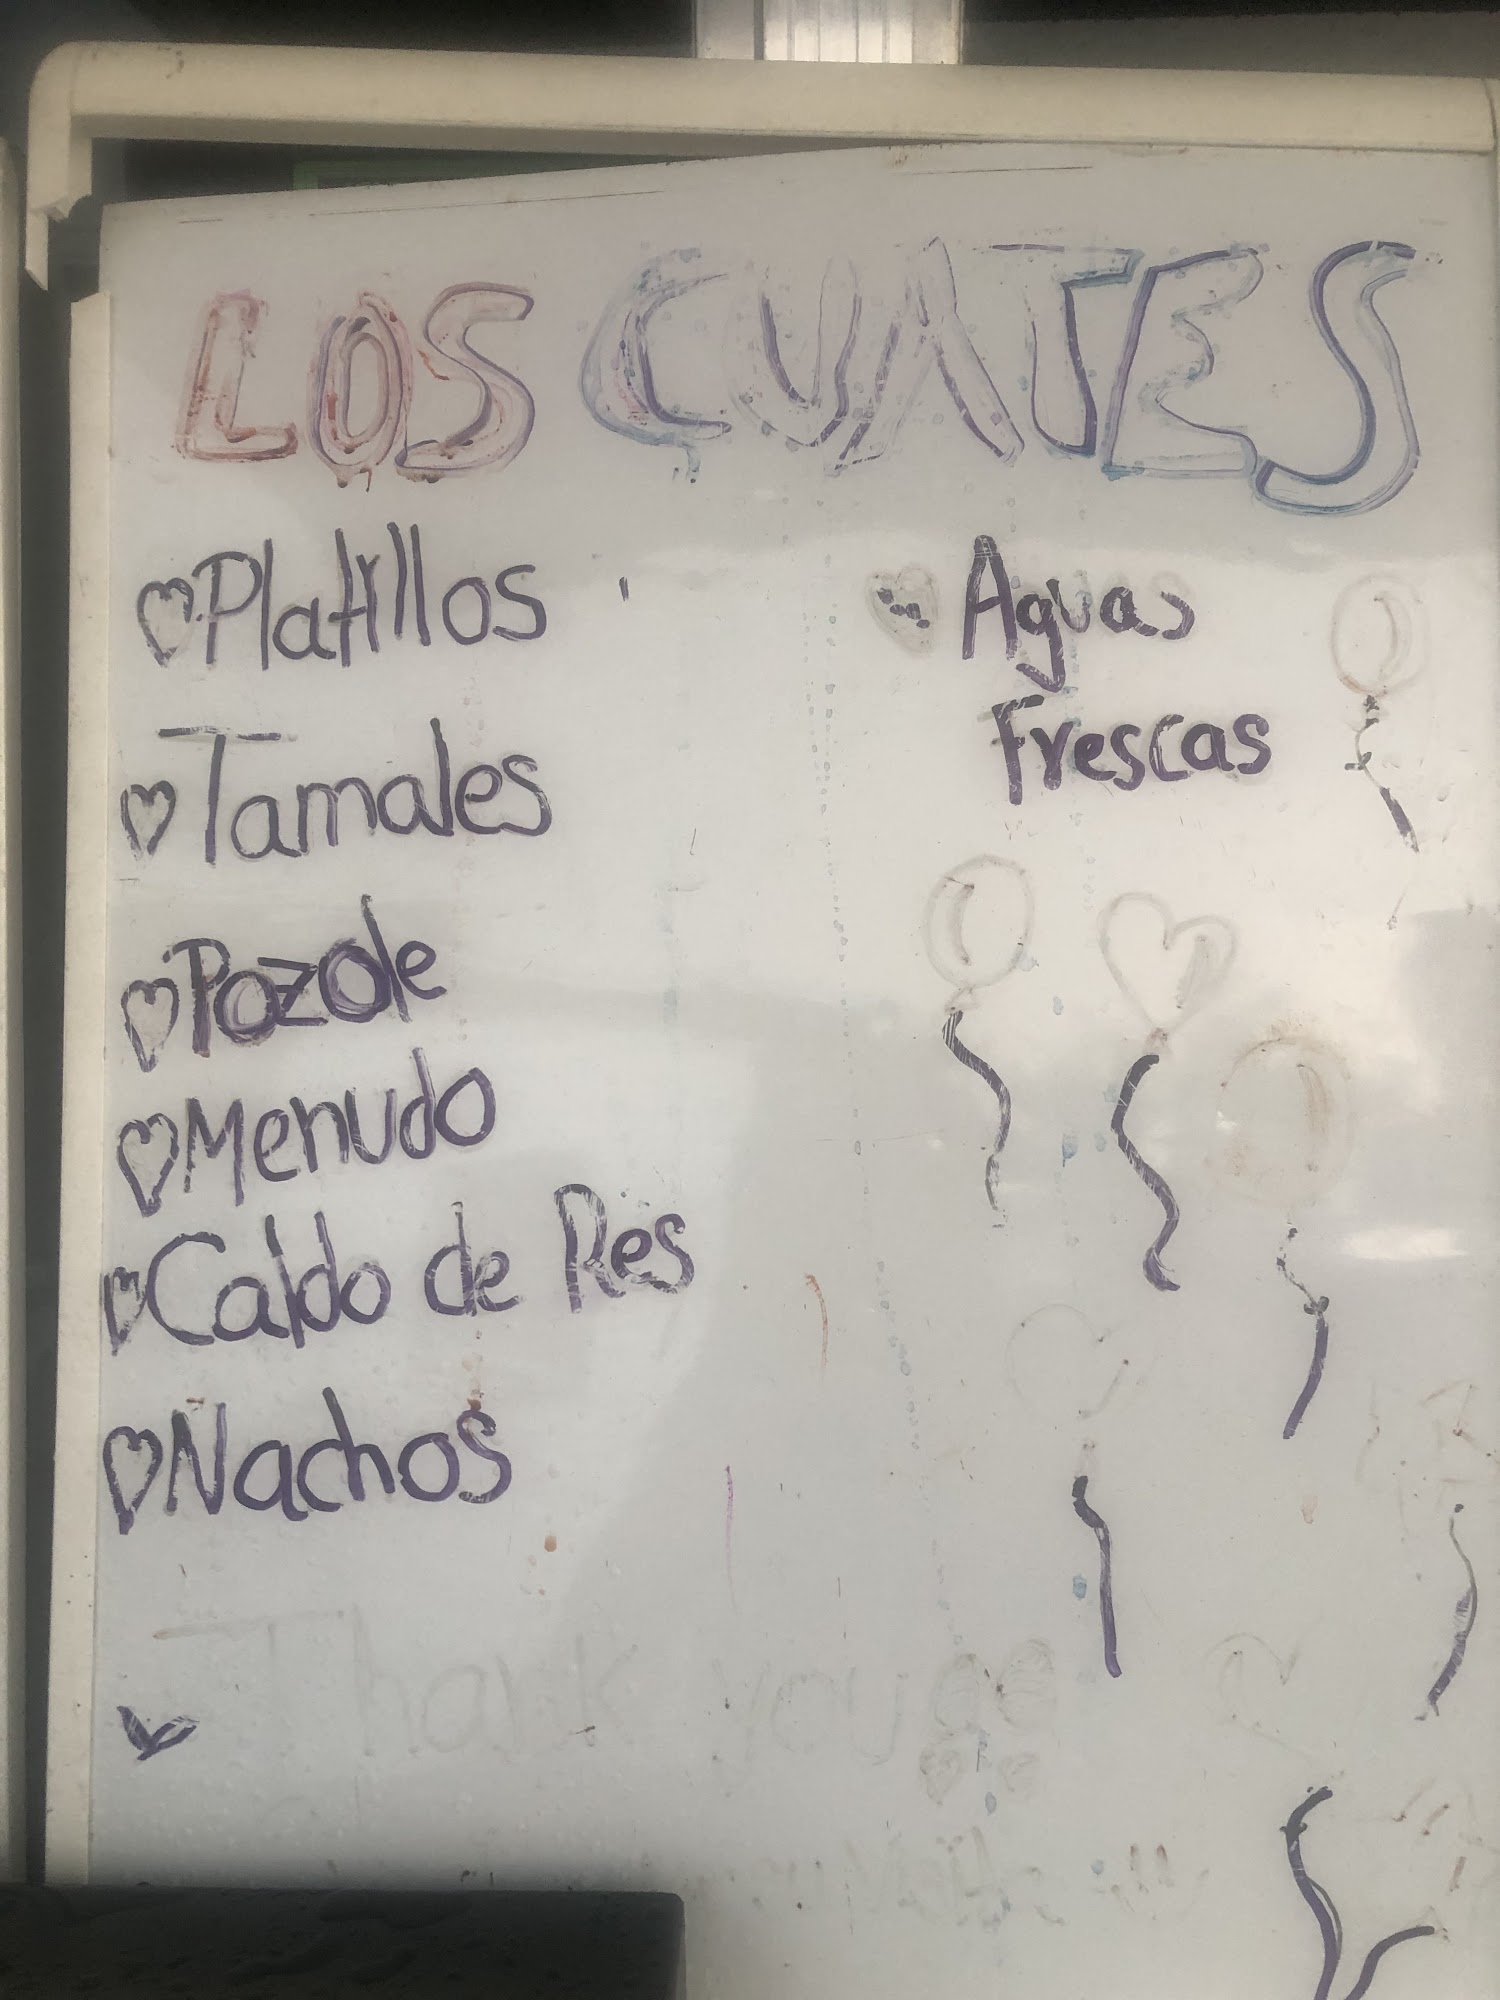 LOS CUATES
Platillos
Tamales
Pozole
Menudo
Caldo de Res
Nachos
Aguas
Frescas
Thank you